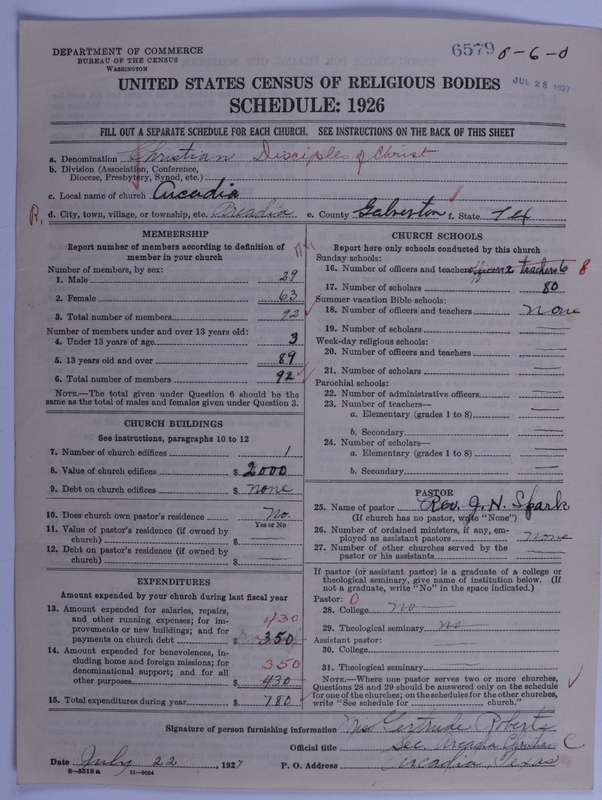 DEPARTMENT OF COMMERCE
BUREAU OF THE CENSUS
WASHINGTON
6579 8-6-0
JUL 28 1927
UNITED STATES CENSUS OF RELIGIOUS BODIES
SCHEDULE: 1926
FILL OUT A SEPARATE SCHEDULE FOR EACH CHURCH. SEE INSTRUCTIONS ON THE BACK OF THIS SHEET
a. Denomination Christian Disciples of Christ
b. Division (Association, Conference, Diocese, Presbytery, Synod, etc.)
c. Local name of church Arcadia
R. d. City, town, village, or township, etc. Arcadia e. County Galveston f. State Tex
MEMBERSHIP
Report number of members according to definition of
member in your church
Number of members, by sex:
1. Male 29
2. Female 63
3. Total number of members 92
Number of members under and over 13 years old:
4. Under 13 years of age 3
5. 13 years old and over 89
6. Total number of members 92
NOTE.—The total given under Question 6 should be
same as the total of males and females given under Question 3.
CHURCH BUILDINGS
See instructions, paragraphs 10 to 12
7. Number of church edifices 1
8. Value of church edifices $ 2000
9. Debt on church edifices $ none
10. Does church own pastor's residence No
Yes or No
11. Value of pastor's residence (if owned by
church) $ —
12. Debt on pastor's residence (if owned by
church) $ —
EXPENDITURES
Amount expended by your church during last fiscal year
13. Amount expended for salaries, repairs,
and other running expenses; for im-
provements or new buildings; and for
payments on church debt $ 430 350
14. Amount expended for benevolences, in-
cluding home and foreign missions; for
denominational support; and for all
other purposes $ 350 430
15. Total expenditures during year $ 780
CHURCH SCHOOLS
Report here only schools conducted by this church
Sunday schools:
16. Number of officers and teachers officers 2 teachers 6 8
17. Number of scholars 80
Summer vacation Bible schools:
18. Number of officers and teachers none
19. Number of scholars —
Week-day religious schools:
20. Number of officers and teachers —
21. Number of scholars —
Parochial schools:
22. Number of administrative officers —
23. Number of teachers—
a. Elementary (grades 1 to 8) —
b. Secondary —
24. Number of scholars—
a. Elementary (grades 1 to 8) —
b. Secondary —
PASTOR
25. Name of pastor Rev. J. N. Spark
(If church has no pastor, write "None")
26. Number of ordained ministers, if any, em-
ployed as assistant pastors none
27. Number of other churches served by the
pastor or his assistants —
If pastor (or assistant pastor) is a graduate of a college or
theological seminary, give name of institution below. (If
not a graduate, write "No" in the space indicated.)
Pastor: 0
28. College no —
29. Theological seminary no —
Assistant pastor:
30. College —
31. Theological seminary —
NOTE.—Where one pastor serves two or more churches,
Questions 28 and 29 should be answered only on the schedule
for one of the churches; on the schedules for the other churches,
write "See schedule for church."
Signature of person furnishing information Mrs Gertrude Roberts
Official title Sec. Arcadia Christian C
Date July 22, 1927 P. O. Address Arcadia, Texas
6—5518 a 11—9084